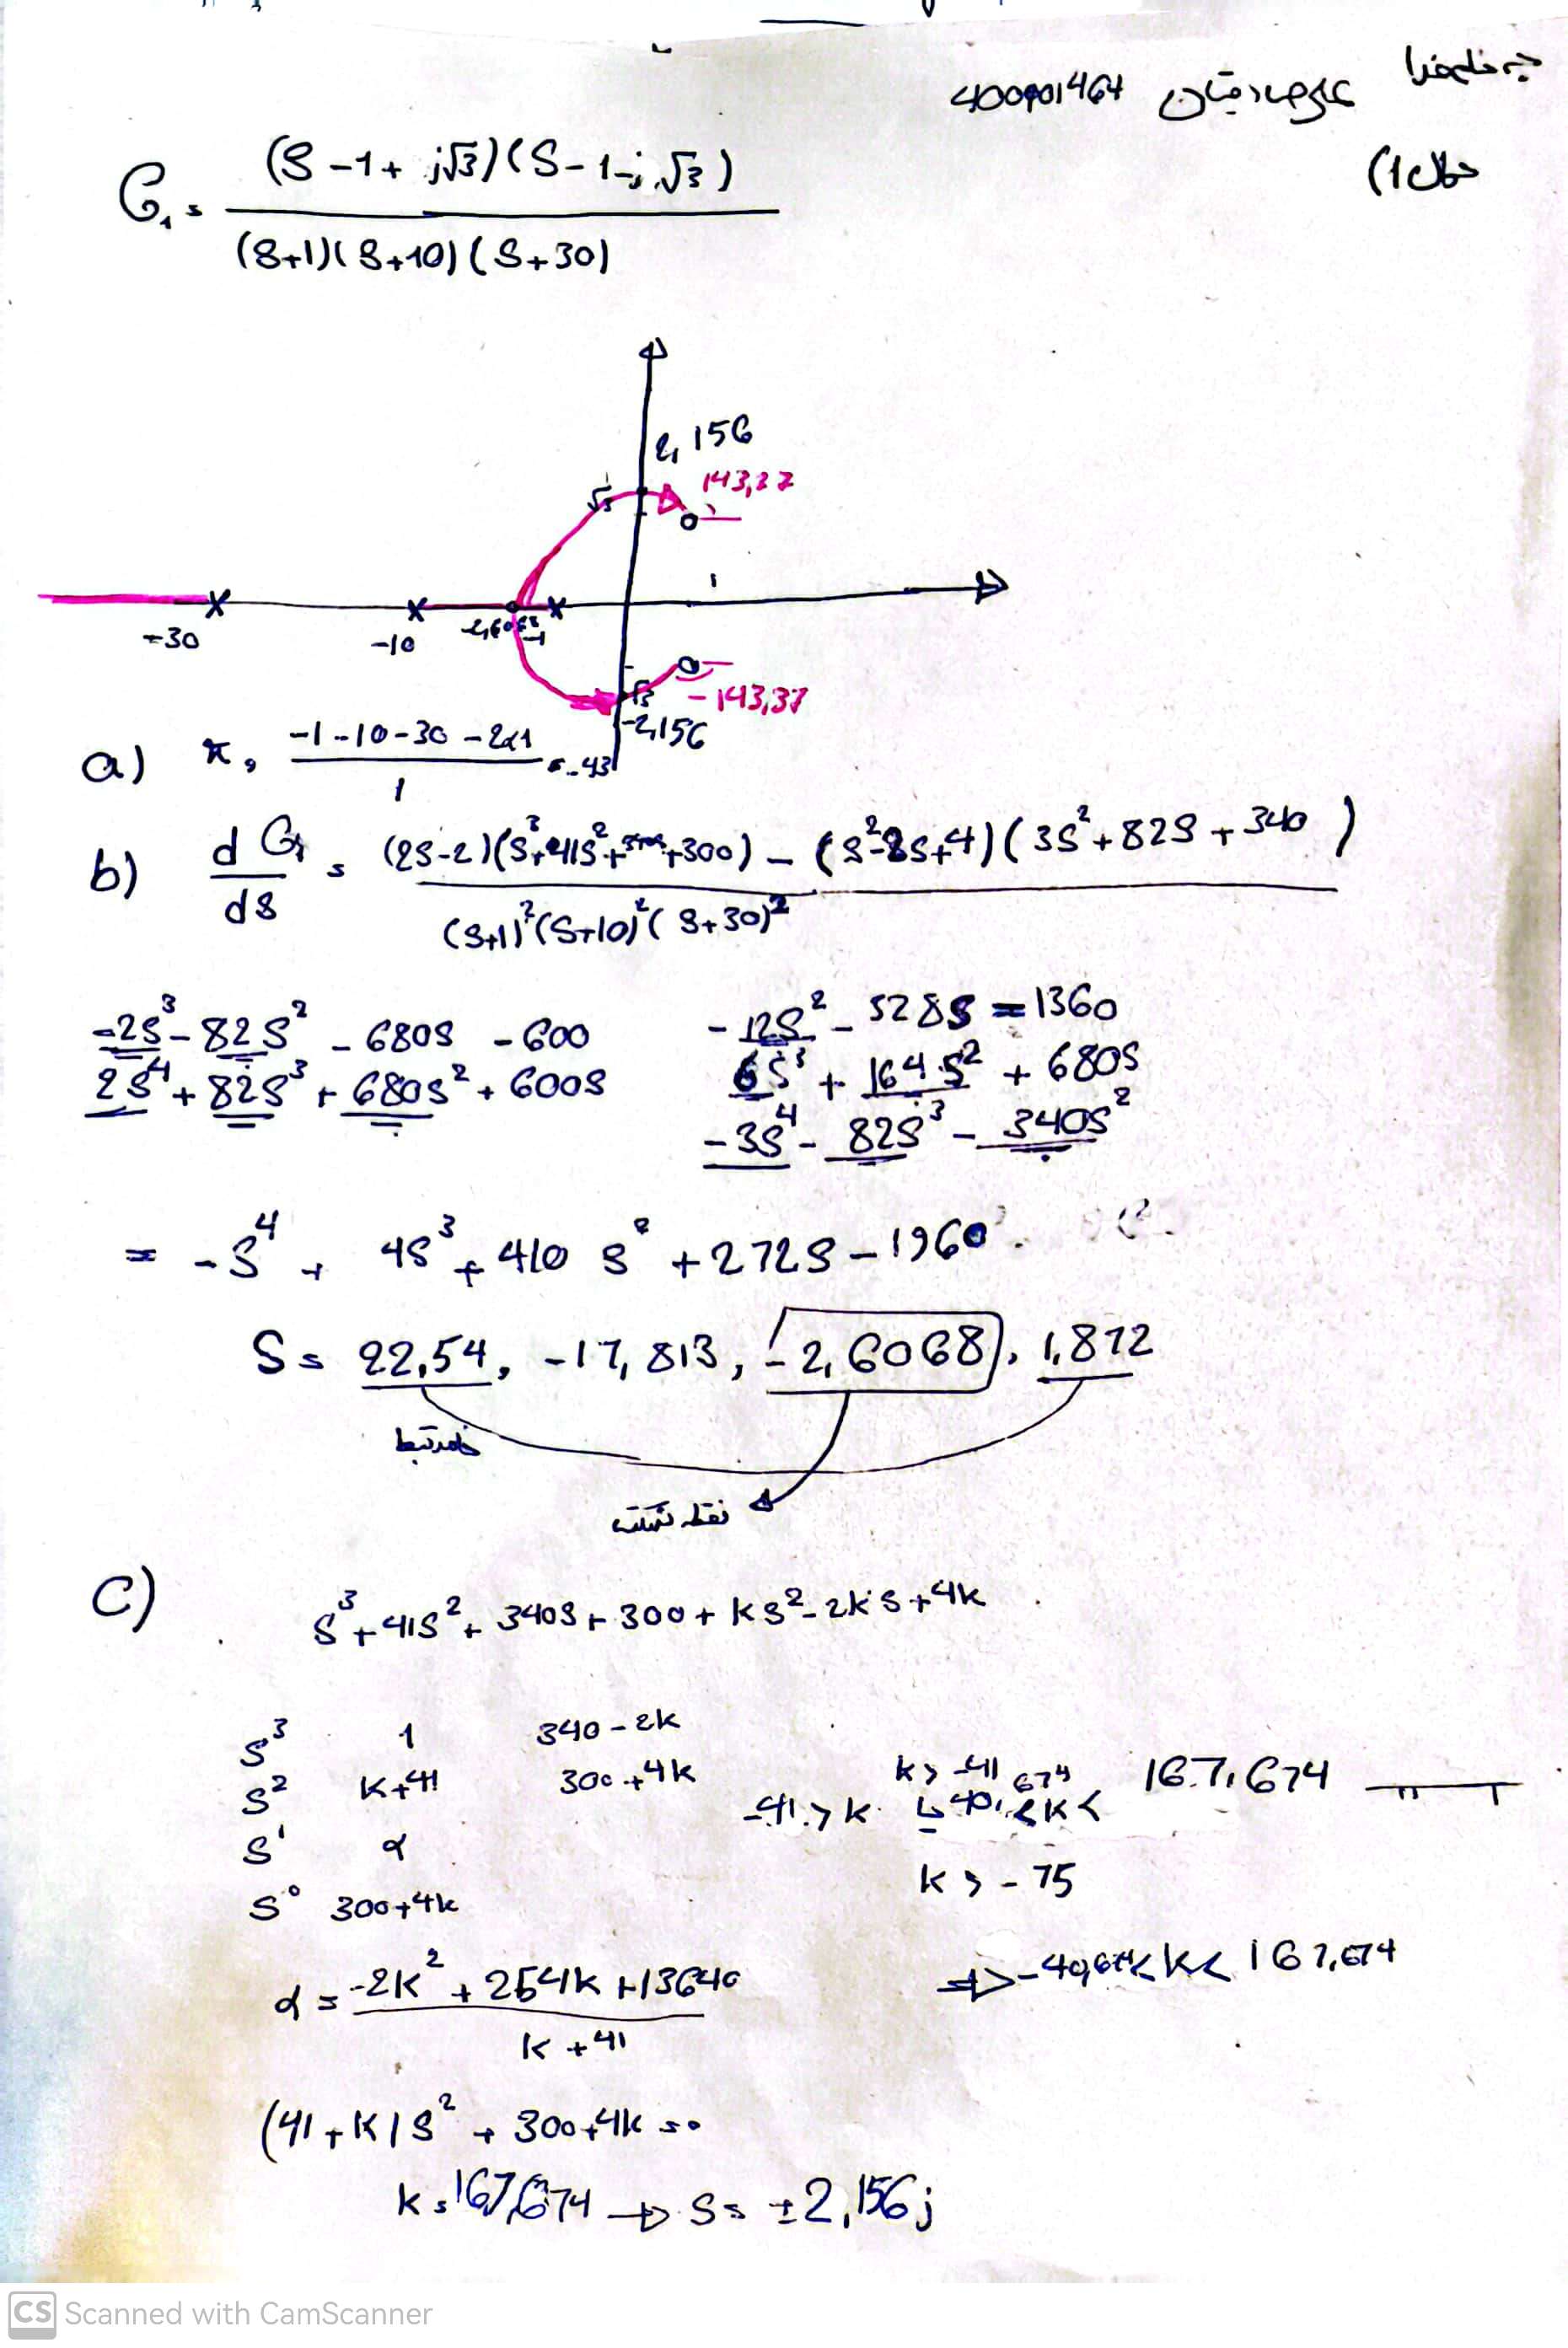 به نام خدا
علی صادقیان 400901464
سوال 1)
G₁ = (S-1+j√3)(S-1-j√3) / (S+1)(S+10)(S+30)
2,156
143,37
√3
1
-30
-10
-2,6068
-1
√3
-143,37
-2,156
a) x = (-1-10-30-2×1) / 1 = -43
b) dG₁/dS = ((2S-2)(S³+41S²+340S+300) - (S²-2S+4)(3S²+82S+340)) / (S+1)²(S+10)²(S+30)²
-2S³-82S²-680S-600 -12S²-328S-1360
2S⁴+82S³+680S²+600S 6S³+164S²+680S
-3S⁴-82S³-340S²
= -S⁴+4S³+410S²+272S-1960
S= 22,54, -17,813, -2,6068, 1,872
نقطه شکست
C) S³+41S²+340S+300+kS²-2kS+4k
S³ 1 340-2k
S² k+41 300+4k
S¹ α
S⁰ 300+4k
k> -41
-41>k -40,674<k< 167,674
k> -75
α = (-2k²+254k+13640) / (k+41)
⇒ -40,674<k<167,674
(41+k)S²+300+4k=0
k=167,674 → S= ±2,156j
CS Scanned with CamScanner